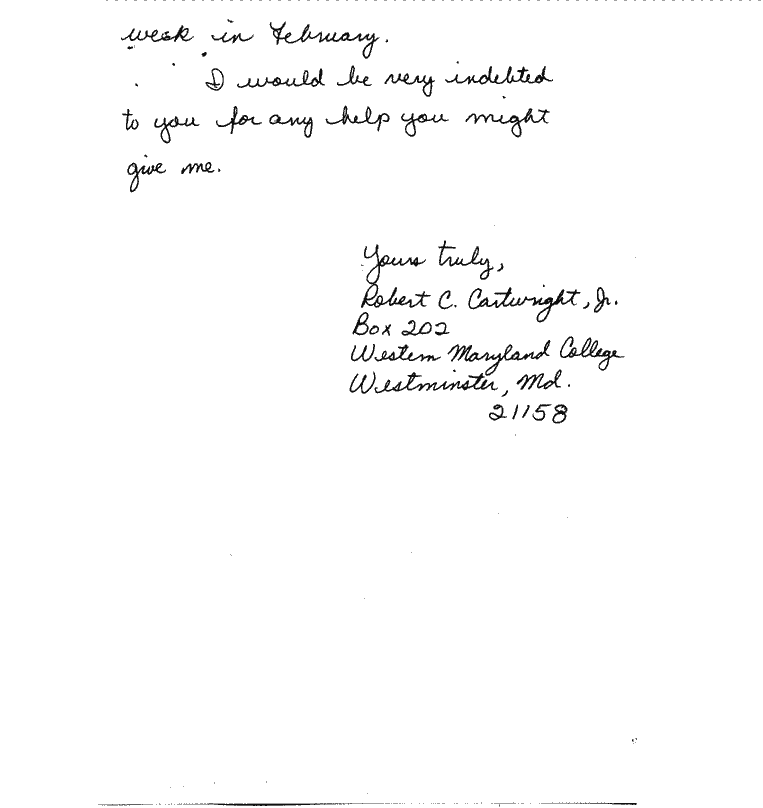 week in February.
I would be very indebted
to you for any help you might
give me.
Yours truly,
Robert C. Cartwright, Jr.
Box 202
Western Maryland College
Westminster, Md.
21158